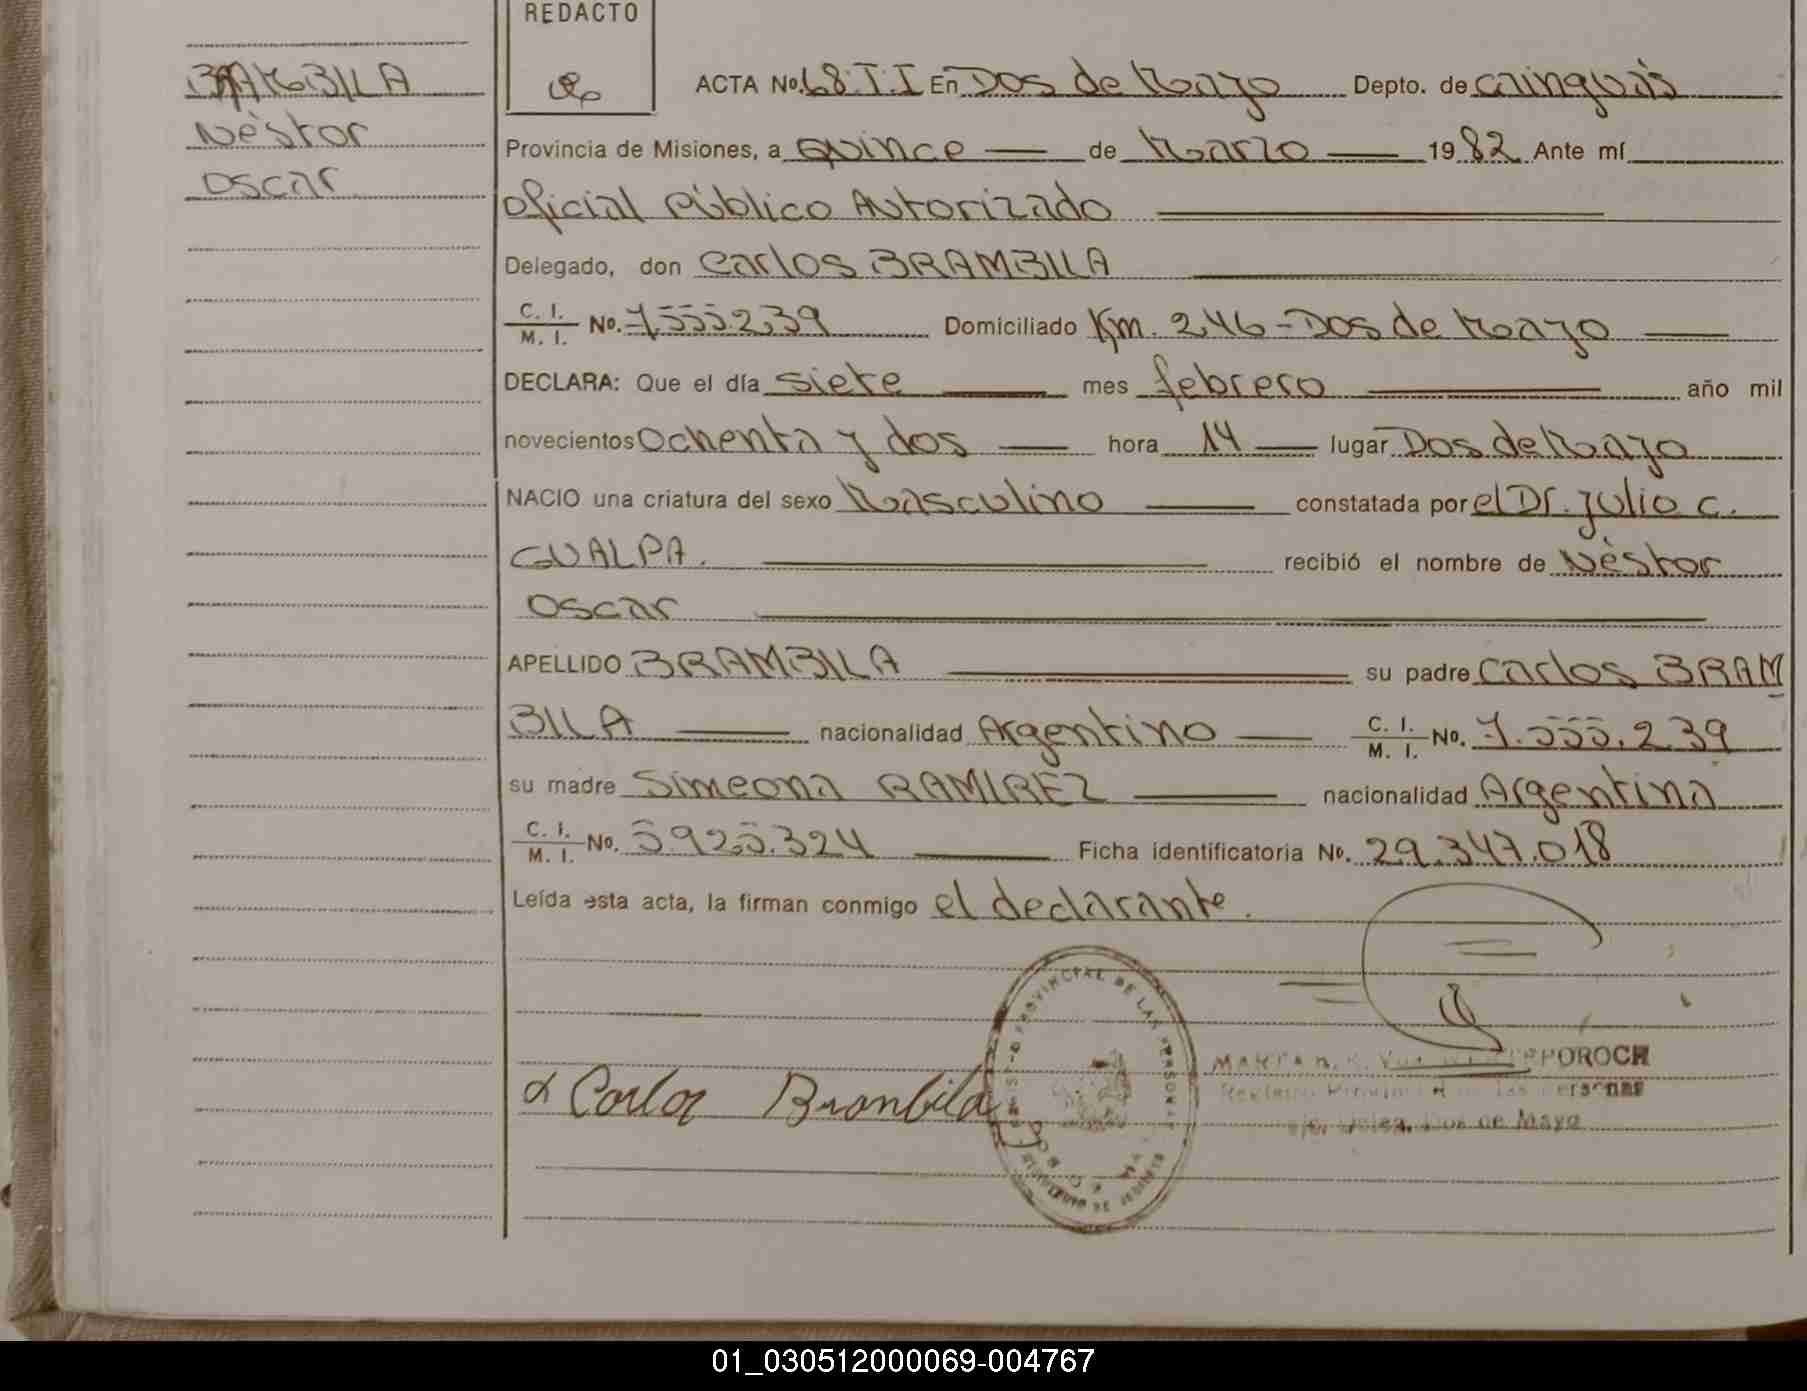 REDACTO
BRAMBILA
Néstor
Oscar
ACTA No. 68.T.I En Dos de Mayo Depto. de Cainguás
Provincia de Misiones, a quince de Marzo 1982 Ante mí
Oficial Público Autorizado
Delegado, don Carlos BRAMBILA
C. I. M. I. No. 7.555.239 Domiciliado Km. 246 - Dos de Mayo
DECLARA: Que el día siete mes febrero año mil
novecientos ochenta y dos hora 14 lugar Dos de Mayo
NACIO una criatura del sexo Masculino constatada por el Dr. Julio C.
GUALPA. recibió el nombre de Néstor
Oscar
APELLIDO BRAMBILA su padre Carlos BRAM
BILA nacionalidad Argentino C. I. M. I. No. 7.555.239
su madre Simeona RAMIREZ nacionalidad Argentina
C. I. M. I. No. 5.925.324 Ficha identificatoria No. 29.347.018
Leída esta acta, la firman conmigo el declarante.
Carlos Brambila
PROVINCIAL DE LAS PERSONAS
POROCH
Personas
Dos de Mayo
01_030512000069-004767